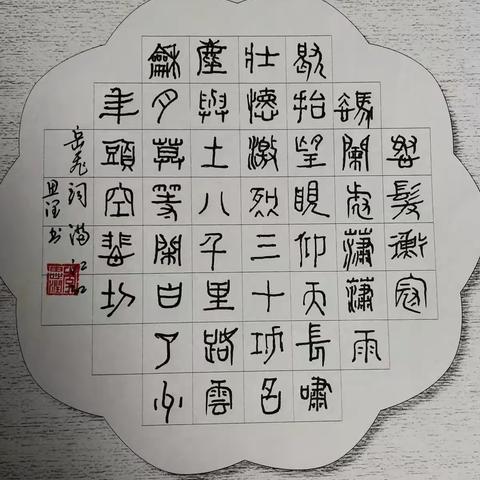 怒髮衝冠
憑闌處瀟瀟雨
歇抬望眼仰天長嘯
壯懷激烈三十功名
塵與土八千里路雲
龢月莫等閒白了少
年頭空悲切
岳飛詞滿江紅
書